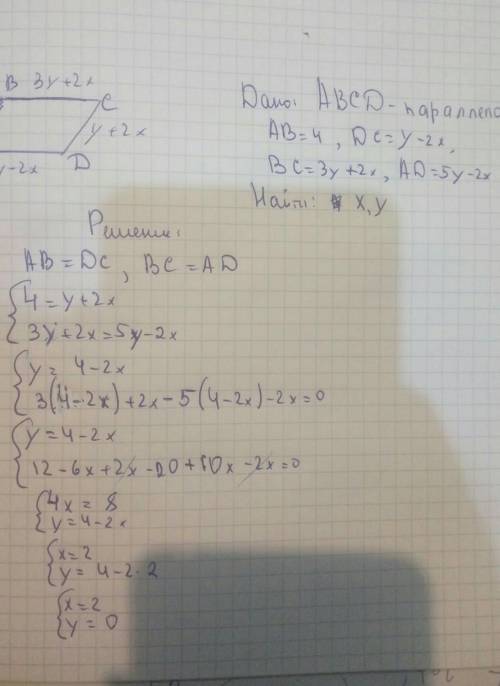 B 3y+2x
C
y+2x
D
y-2x
Дано: ABCD-паралле
AB=4, DC=y-2x,
BC=3y+2x, AD=5y-2x
Найти: x,y
Решение:
AB=DC, BC=AD
{4=y+2x
3y+2x=5y-2x
{y=4-2x
3(4-2x)+2x-5(4-2x)-2x=0
{y=4-2x
12-6x+2x-20+10x-2x=0
{4x=8
y=4-2x
{x=2
y=4-2·2
{x=2
y=0